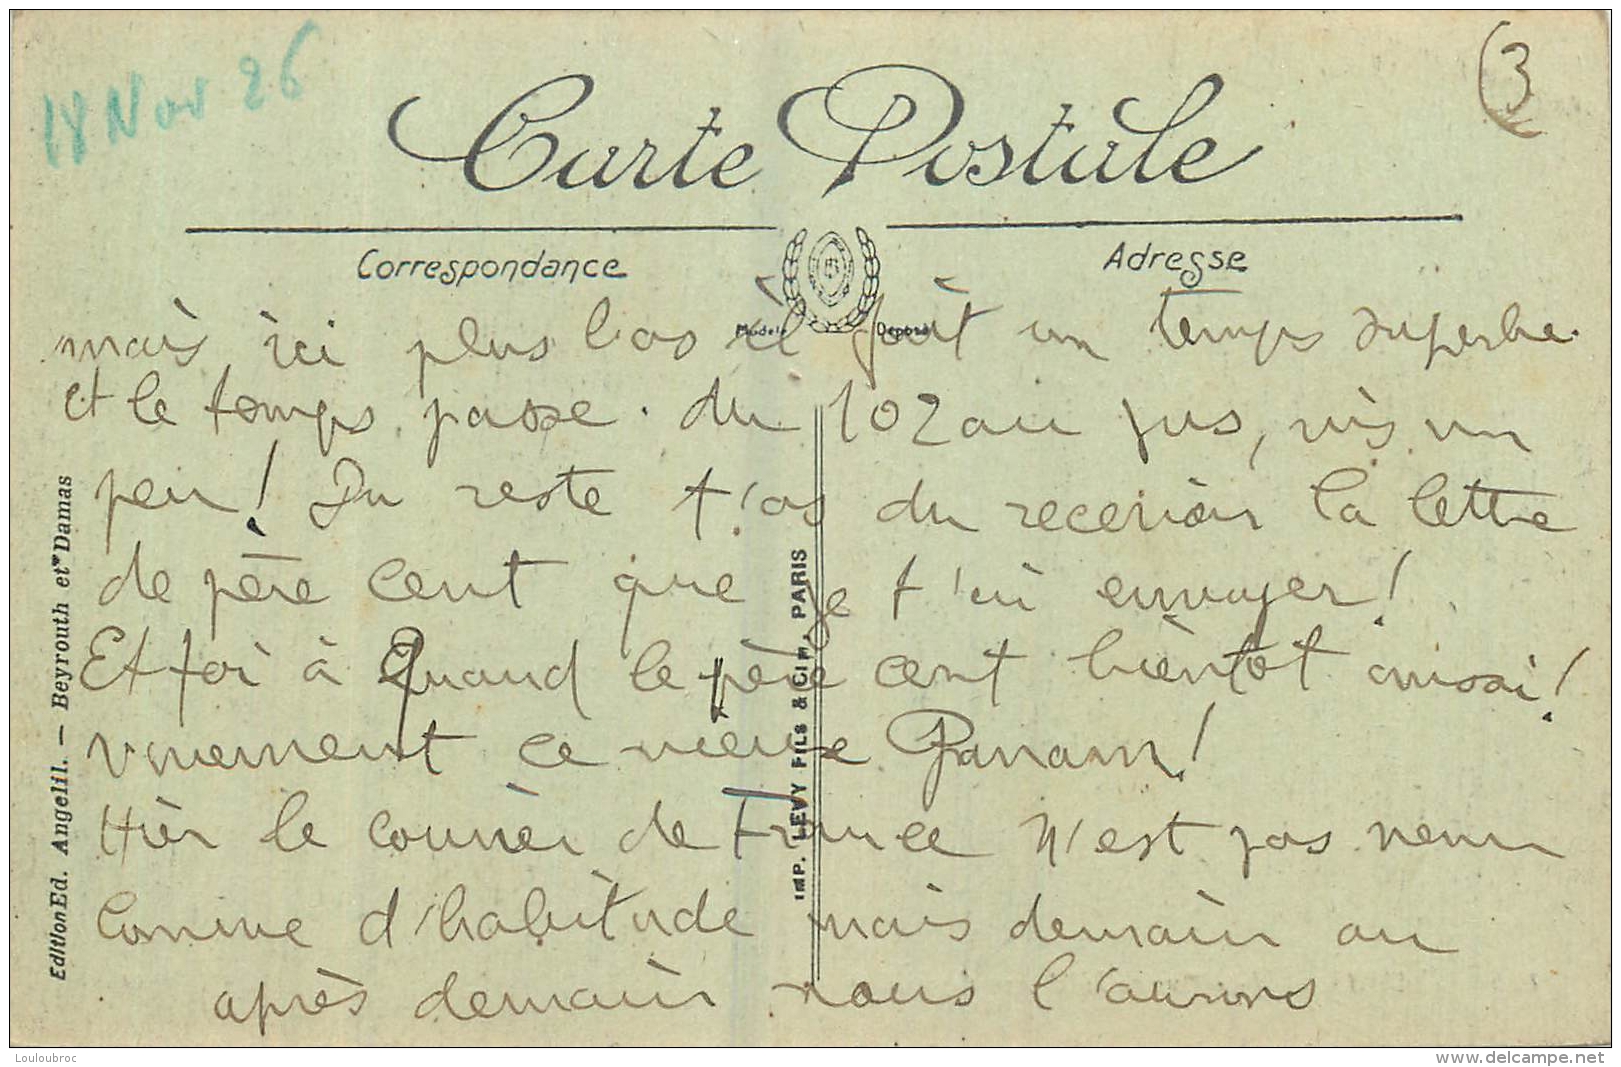 18 Nov 26
3
Carte Postale
Correspondance
Adresse
Modèle Déposé
mais ici plus bas il fait un temps superbe.
et le temps passe. du 102 au jus, vis un
peu! Du reste t'as du recevoir la lettre
de père cent que je t'ai envoyer!
Et toi à Quand le père cent bientot aussi!
vivement ce vieux Panam!
Hier le courrier de France n'est pas venu
Comme d'habitude mais demain ou
après demain nous l'aurons
Edition Ed. Angelil. — Beyrouth et Damas
IMP. LEVY FILS & Cie, PARIS
Louloubroc
www.delcampe.net